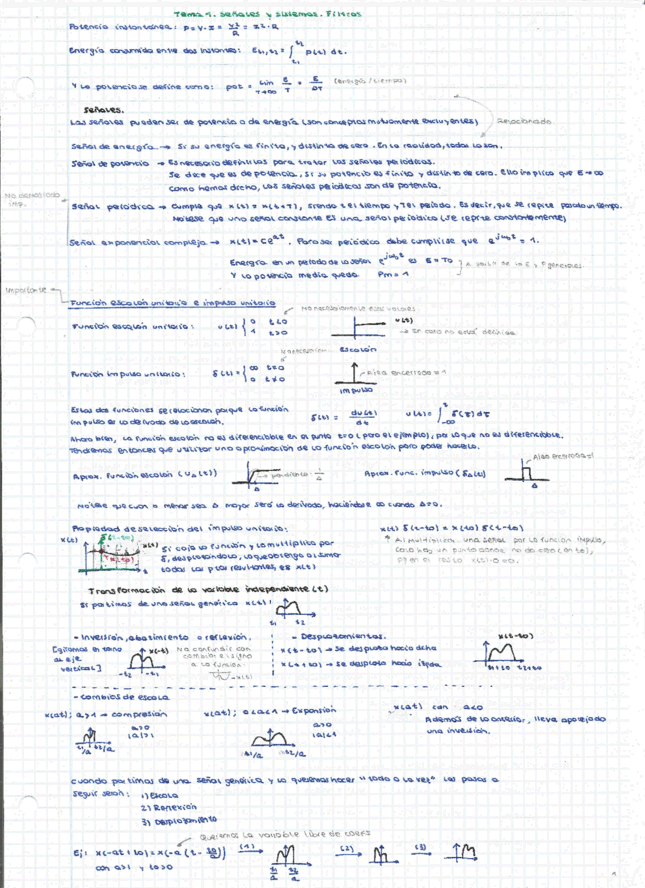 Tema 1. Señales y sistemas. Filtros
Potencia instantánea: P = V·I = V²/R = I²·R
Energía consumida entre dos instantes: E t₁,t₂ = ∫ t₁ t₂ p(t) dt.
Y la potencia se define como: pot = lim T→∞ E/T = E/ΔT (energía/tiempo)
Señales.
Las señales pueden ser de potencia o de energía (son conceptos mutuamente excluyentes) Relacionado
Señal de energía → Si su energía es finita, y distinta de cero. En la realidad, todas lo son.
Señal de potencia → Es necesario definirlas para tratar las señales periódicas.
Se dice que es de potencia, si su potencia es finita y distinta de cero. Ello implica que E→∞
Como hemos dicho, las señales periódicas son de potencia.
No demasiado imp.
Señal periódica → Cumple que x(t) = x(t+T), siendo t el tiempo y T el período. Es decir, que se repite pasado un tiempo.
Nótese que una señal constante ES una señal periódica (se repite constantemente)
Señal exponencial compleja → x(t) = Ce^at. Para ser periódica debe cumplirse que e^jω₀t = 1.
Energía en un periodo de la señal e^jω₀t es E = T₀
Y la potencia media queda Pm = 1
Importante
Función escalón unitario e impulso unitario
No necesariamente esos valores
Función escalón unitario: u(t) { 0 t<0
1 t>0
u(t)
→ En cero no está definida
escalón
Función impulso unitario: δ(t) = { ∞ t=0
0 t≠0
Área encerrada = 1
impulso
Estas dos funciones se relacionan porque la función
impulso es la derivada de la escalón.
δ(t) = du(t)/dt u(t) = ∫ -∞ t δ(τ) dτ
Ahora bien, la función escalón no es diferenciable en el punto t=0 (para el ejemplo), por lo que no es diferenciable.
Tendremos entonces que utilizar una aproximación de la función escalón para poder hacerlo.
Área encerrada=1
Aprox. Función escalón (uΔ(t)) pendiente: 1/Δ Aprox. Func. impulso (δΔ(t))
Δ Δ
Nótese que cuanto menor sea Δ mayor será la derivada, haciéndose ∞ cuando Δ=0.
Propiedad de selección del impulso unitario: x(t) δ(t-t0) = x(t0) δ(t-t0)
x(t) δ(t-t0) x(t) x(t0) t
Si cojo la función y la multiplico por
δ, desplazándola, lo que obtengo al sumar
todas las ptos resultantes, es x(t)
Al multiplicar una señal por la función impulso,
Transformación de la variable independiente (t)
Si partimos de una señal genérica x(t):
t1 t2
- Inversión, abatimiento o reflexión.
[giramos en torno
al eje
vertical]
x(-t)
-t2 -t1
No confundir con
cambiar el signo
a la función:
-x(t)
- Desplazamientos.
x(t-t0) → Se desplaza hacia dcha
x(t+t0) → Se desplaza hacia izqda
x(t-t0)
t1+t0 t2+t0
- Cambios de escala
x(at); a>1 → compresión x(at); 0<a<1 → Expansión x(at) con a<0
a>0
|a|>1
t1/a t2/a
a>0
|a|<1
t1/a t2/a
Además de lo anterior, lleva aparejado
una inversión.
Cuando partimos de una señal genérica y la queremos hacer "todo a la vez" los pasos a
seguir serán: 1) Escala
2) Reflexión
3) Desplazamiento
Queremos la variable libre de coefs
Ej: x(-at+t0) = x(-a(t-t0/a)) (1)→ (2)→ (3)→
con a>1 y t0>0
t1/a t2/a
1